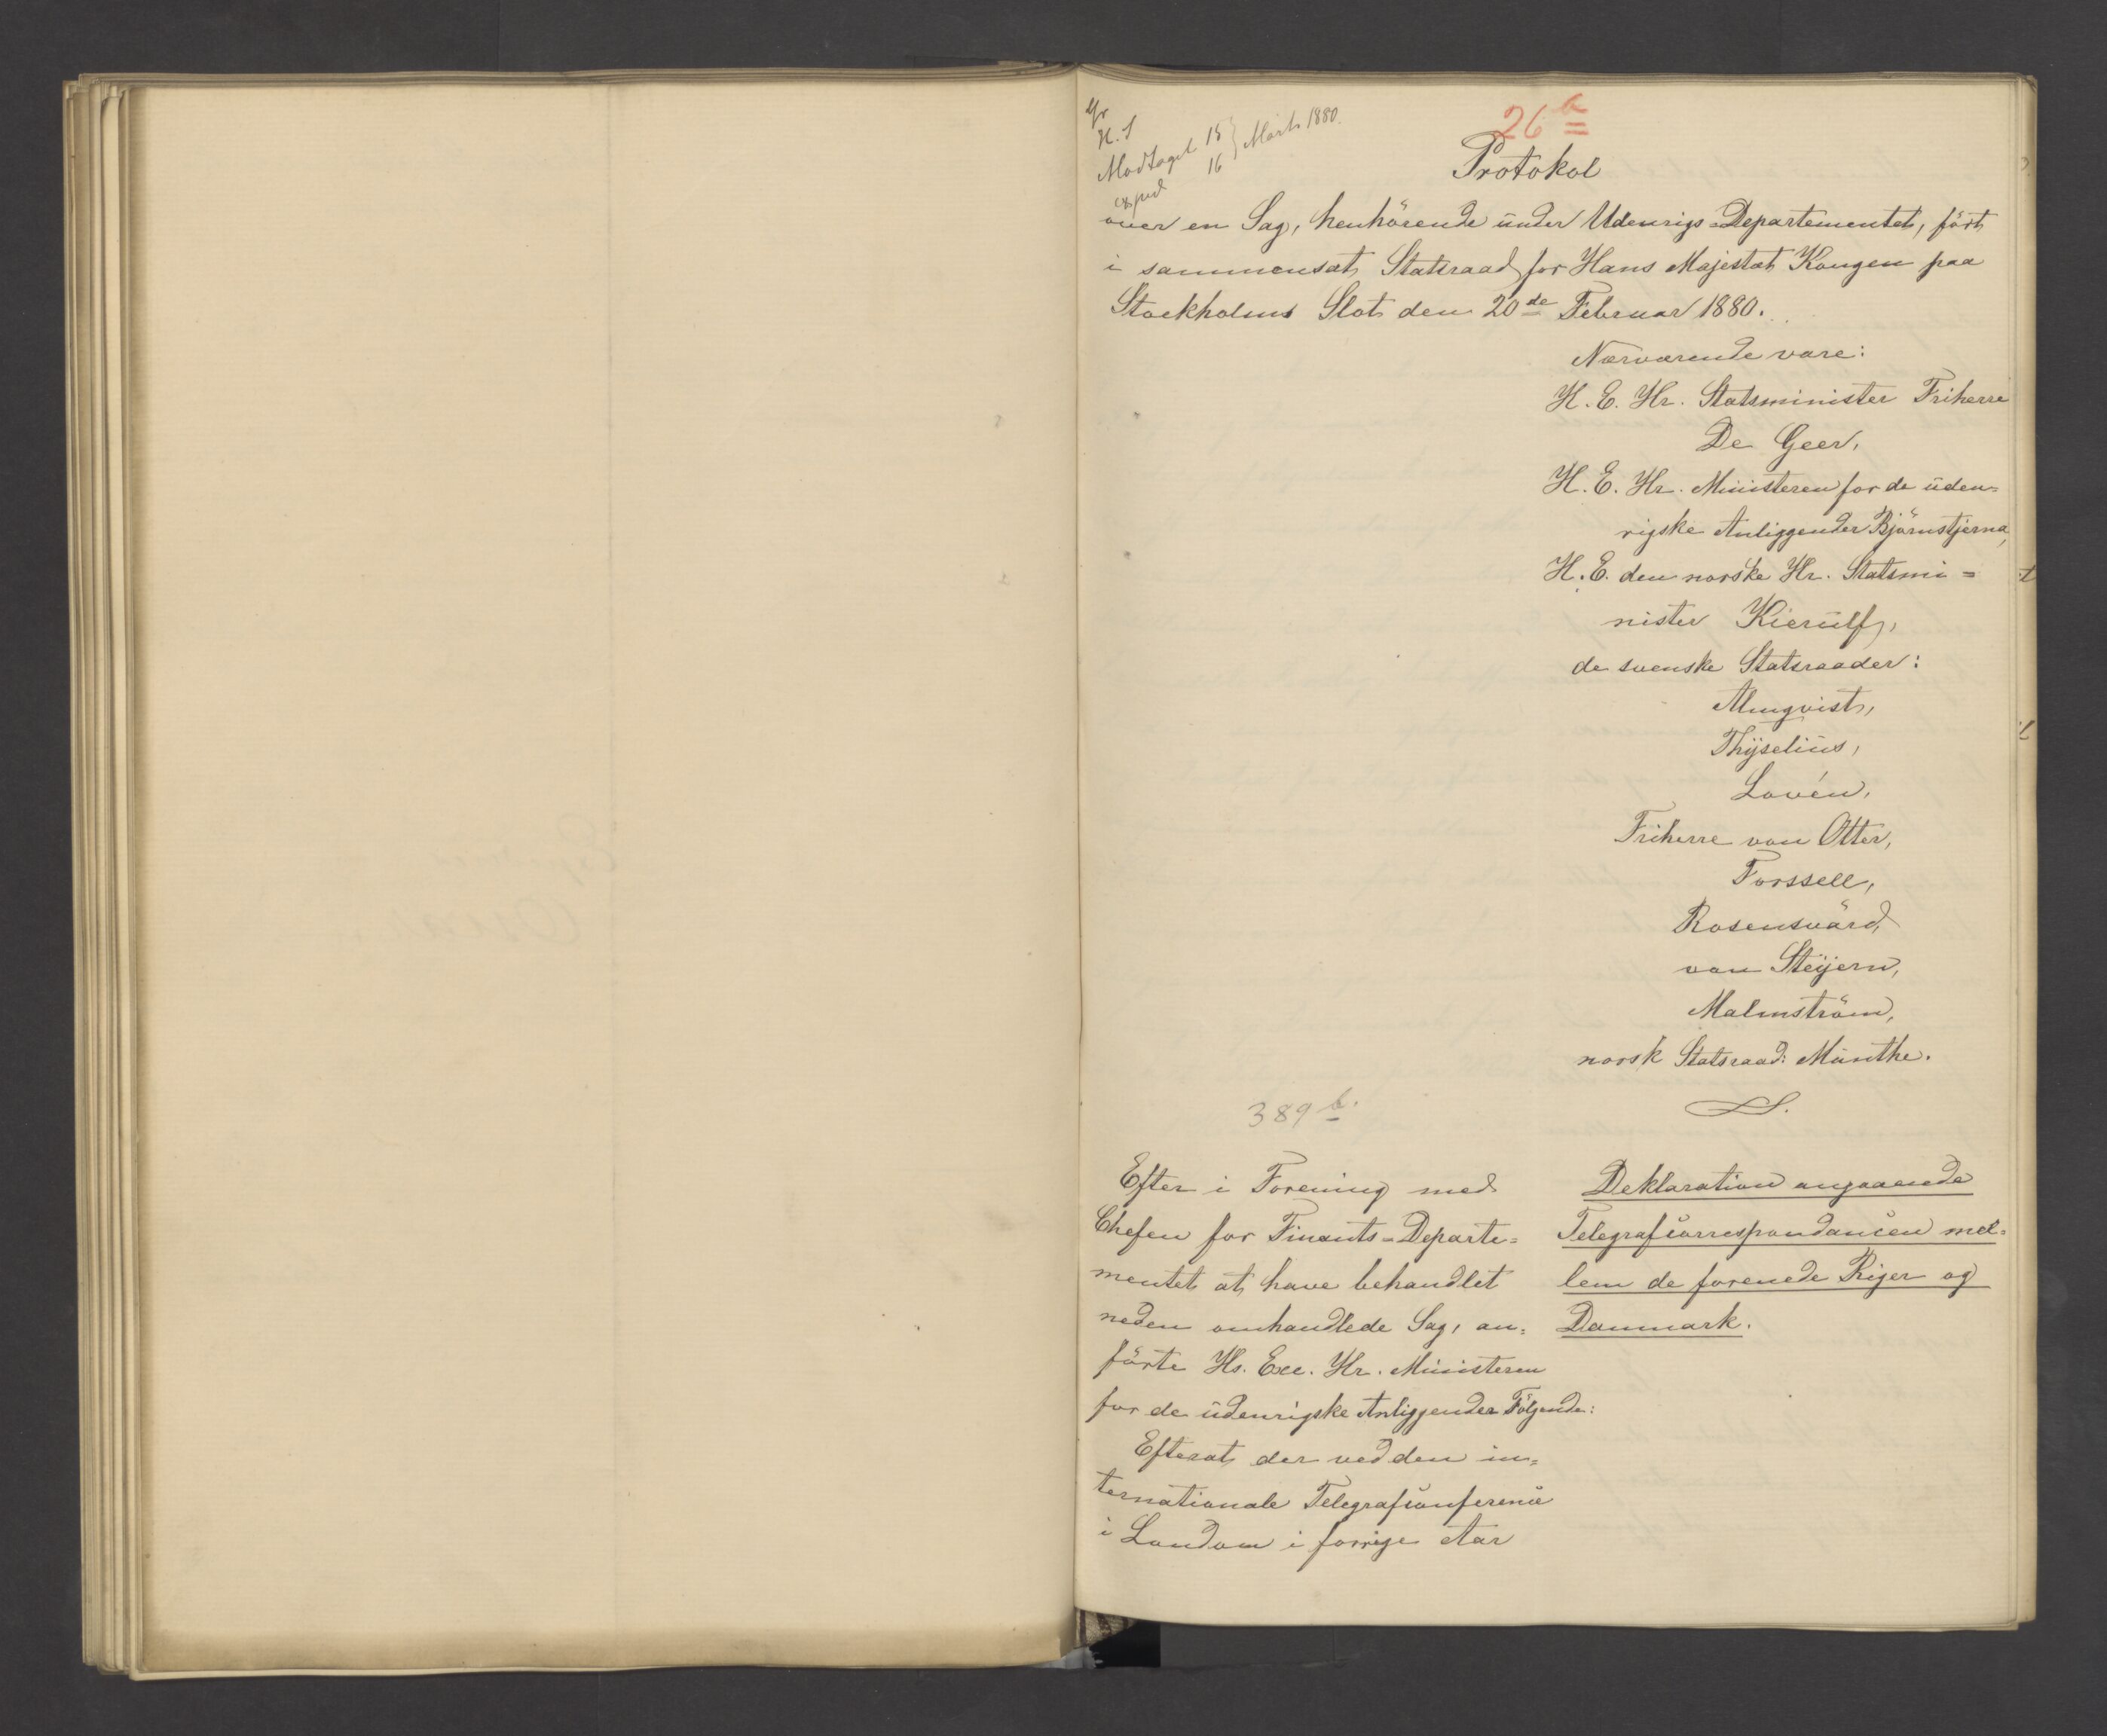 H. S
Modtaget 15 } Marts 1880.
exped 16
26 b
Protokol
over en Sag, henhörende under Udenrigs-Departementet, fört
i sammensat Statsraad for Hans Majestæt Kongen paa
Stockholms Slot den 20de Februar 1880.
Nærværende vare:
H. E. Hr. Statsminister Friherre
De Geer,
H. E. Hr. Ministeren for de uden-
rigske Anliggender Björnstjerna,
H. E. den norske Hr. Statsmi-
nister Kierulf,
de svenske Statsraader:
Almqvist,
Thyselius,
Lovén,
Friherre von Otter,
Forssell,
Rosensvärd,
von Steyern,
Malmström,
norsk Statsraad: Munthe.
389 b.
Efter i Forening med
Chefen for Finants-Departe-
mentet at have behandlet
neden omhandlede Sag, an-
förte Hs. Exc. Hr. Ministeren
for de udenrigske Anliggender Følgende:
Efterat der ved den in-
ternationale Telegrafconference
i London i forrige Aar
Deklaration angaaende
Telegrafcorrespondancen mel-
lem de forenede Riger og
Danmark.